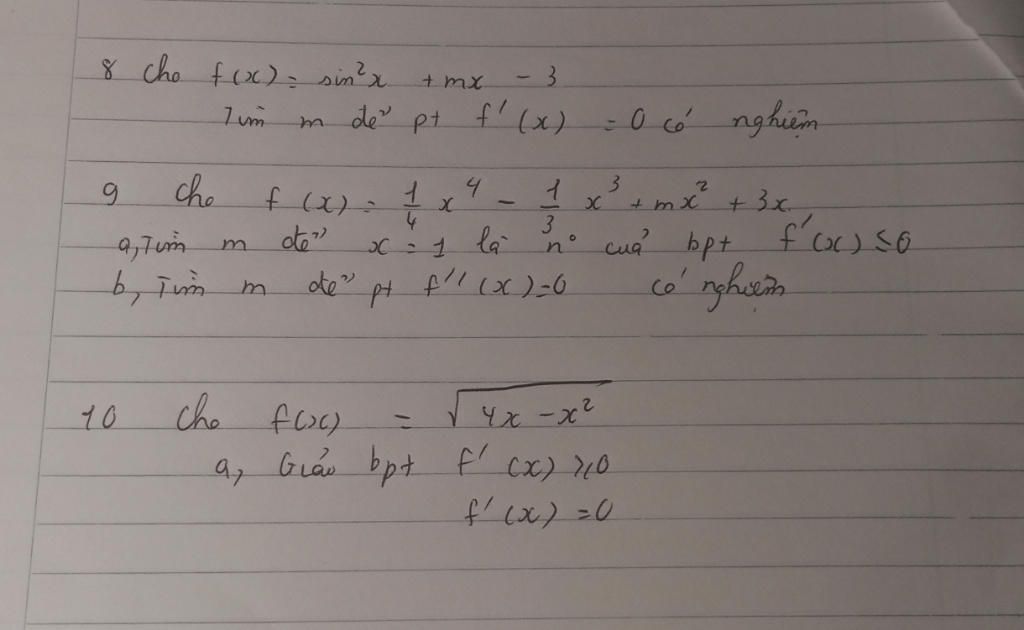 8 Cho f(x) = sin²x + mx - 3
Tìm m để pt f'(x) = 0 có nghiệm
9 Cho f(x) = 1/4 x⁴ - 1/3 x³ + mx² + 3x
a, Tìm m để x = 1 là n° của bpt f'(x) ≤ 0
b, Tìm m để pt f''(x) = 0 có nghiệm
10 Cho f(x) = √(4x - x²)
a, Giải bpt f'(x) ≥ 0
f'(x) = 0